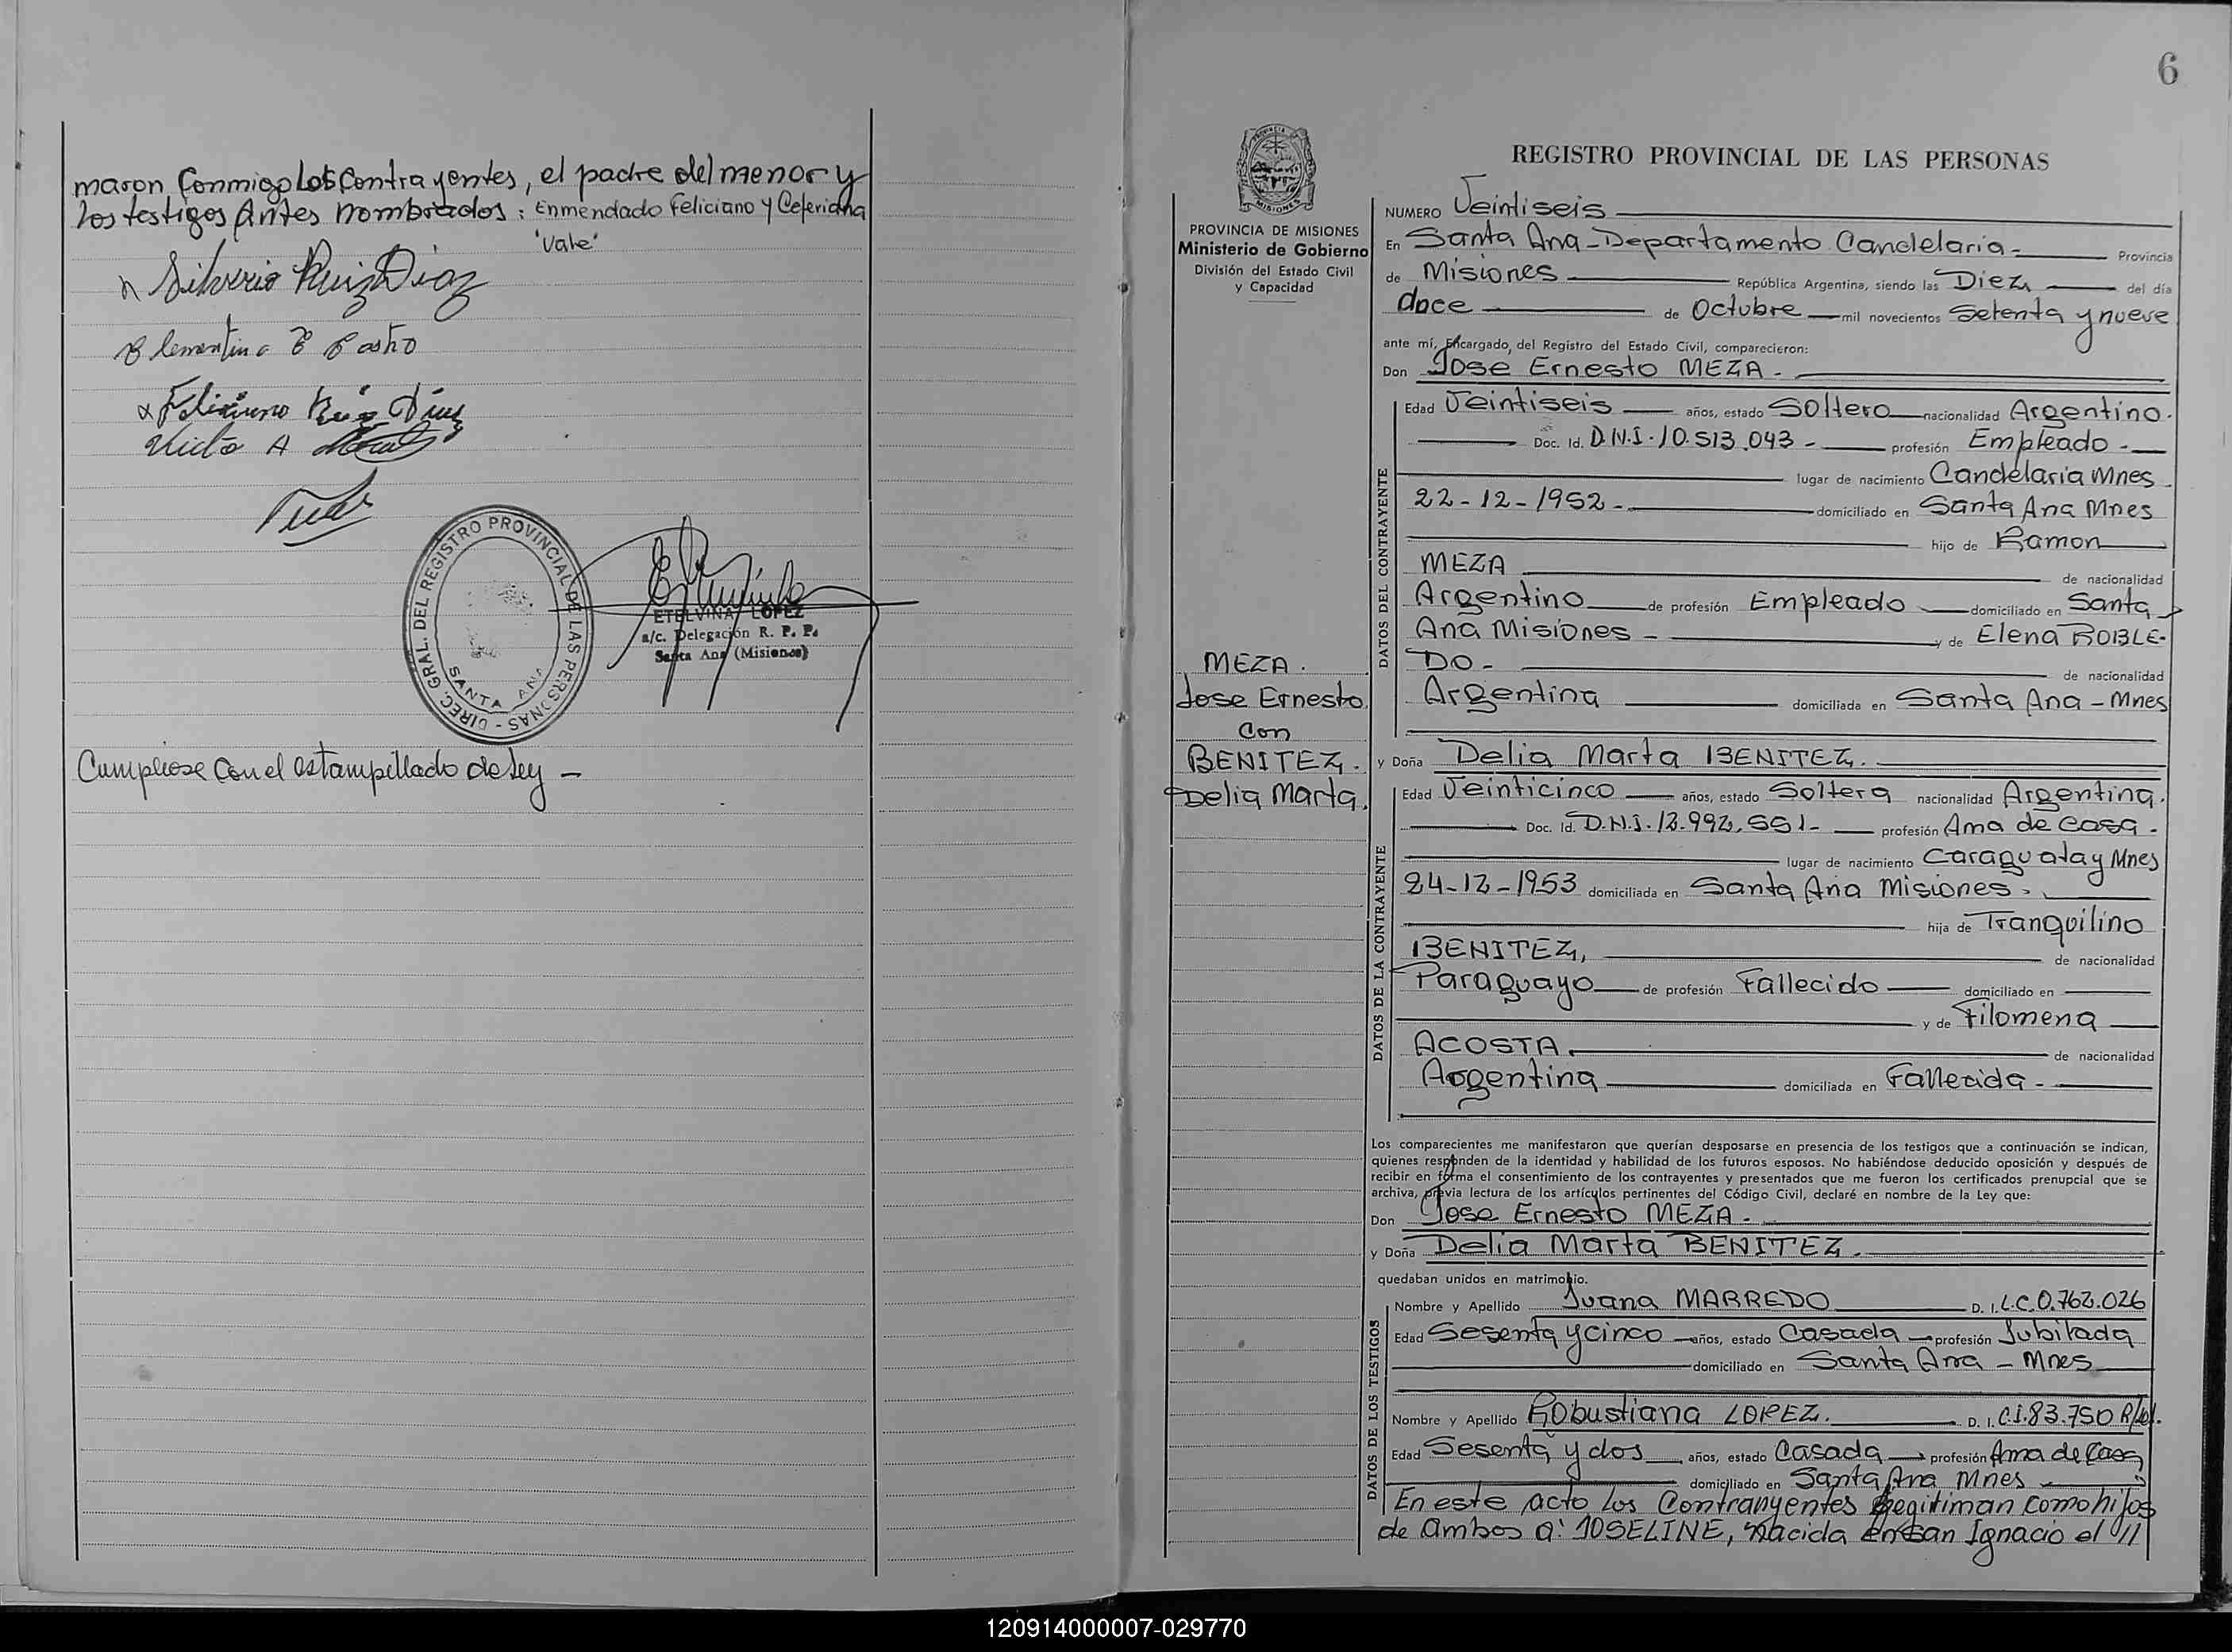 maron Conmigo Los Contrayentes, el padre del menor y
los testigos Antes nombrados : Enmendado Feliciano y Ceferidna
"Vale"
Silverio Ruiz Diaz
Clementina E Castro
x Feliciano Ruiz Diaz
A
DIREC. GRAL. DEL REGISTRO PROVINCIAL DE LAS PERSONAS -
SANTA ANA
ETELVINA LOPEZ
a/c. Delegación R. P. P.
Santa Ana (Misiones)
Cumpliose Con el estampillado de ley -
6
PROVINCIA DE MISIONES
Ministerio de Gobierno
División del Estado Civil
y Capacidad
MEZA.
Jose Ernesto
Con
BENITEZ.
Delia Marta.
REGISTRO PROVINCIAL DE LAS PERSONAS
NUMERO Veintiseis
En Santa Ana - Departamento Candelaria - Provincia
de Misiones República Argentina, siendo las Diez del día
doce de Octubre mil novecientos Setenta y nueve
ante mí, Encargado del Registro del Estado Civil, comparecieron:
Don Jose Ernesto MEZA -
DATOS DEL CONTRAYENTE
Edad Veintiseis años, estado Soltero nacionalidad Argentino.
Doc. Id. D.N.I. 10.513.043 - profesión Empleado -
lugar de nacimiento Candelaria Mnes
22-12-1952 - domiciliado en Santa Ana Mnes
hijo de Ramon
MEZA de nacionalidad
Argentino de profesión Empleado domiciliado en Santa
Ana Misiones - y de Elena ROBLE-
DO - de nacionalidad
Argentina domiciliada en Santa Ana - Mnes
y Doña Delia Marta BENITEZ.
DATOS DE LA CONTRAYENTE
Edad Veinticinco años, estado Soltera nacionalidad Argentina.
Doc. Id. D.N.I. profesión Ama de Casa.
lugar de nacimiento Caraguatay Mnes
24-12-1953 domiciliada en Santa Ana Misiones.
hija de Tranquilino
BENITEZ, de nacionalidad
Paraguayo de profesión Fallecido domiciliado en
y de Filomena
ACOSTA. de nacionalidad
Argentina domiciliada en Fallecida -
Los comparecientes me manifestaron que querían desposarse en presencia de los testigos que a continuación se indican,
quienes responden de la identidad y habilidad de los futuros esposos. No habiéndose deducido oposición y después de
recibir en forma el consentimiento de los contrayentes y presentados que me fueron los certificados prenupcial que se
archiva, previa lectura de los artículos pertinentes del Código Civil, declaré en nombre de la Ley que:
Don Jose Ernesto MEZA -
y Doña Delia Marta BENITEZ.
quedaban unidos en matrimonio.
DATOS DE LOS TESTIGOS
Nombre y Apellido Juana MARREDO D. I. L.C. 0.762.026
Edad Sesenta y cinco años, estado Casada profesión Jubilada
domiciliado en Santa Ana - Mnes
Nombre y Apellido Robustiana LOPEZ. D. I. C.I. 83.750
Edad Sesenta y dos años, estado Casada profesión Ama de Casa
domiciliado en Santa Ana Mnes
En este acto los Contranyentes Legitiman como hijos
de ambos a: JOSELINE, nacida En San Ignacio el 11
120914000007-029770